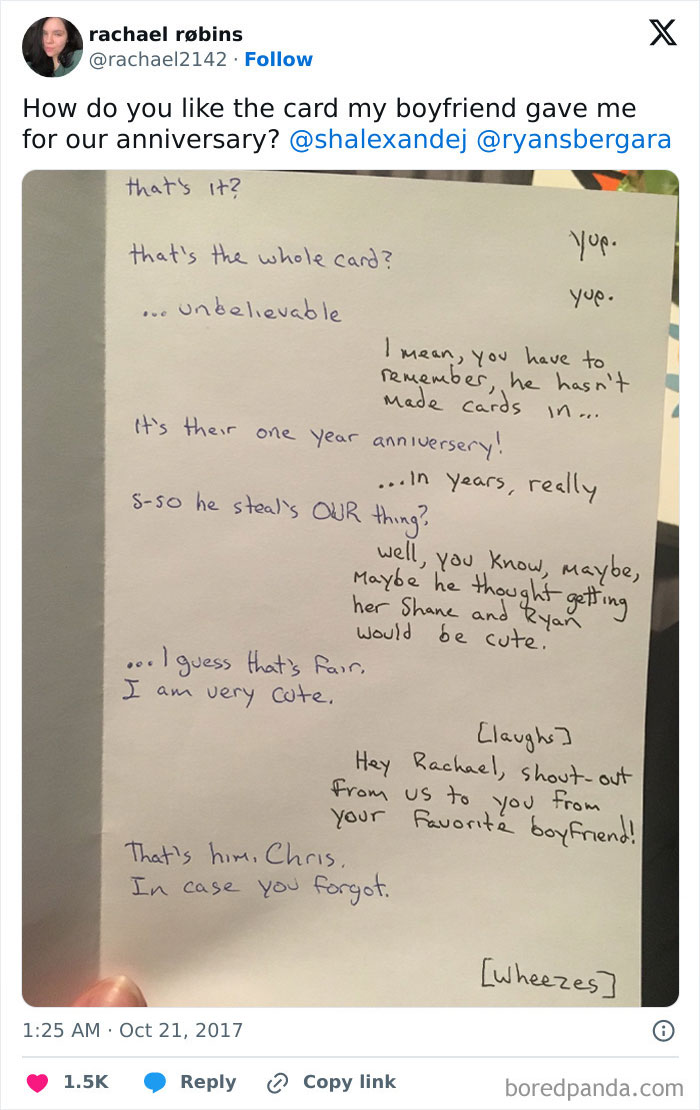 rachael røbins
@rachael2142 · Follow
X
How do you like the card my boyfriend gave me
for our anniversary? @shalexandej @ryansbergara
that's it?
Yup.
that's the whole card?
yup.
... unbelievable
I mean, you have to
remember, he hasn't
made cards in...
It's their one year anniversery!
...in years, really
S-so he steal's OUR thing?
well, you know, maybe,
Maybe he thought getting
her Shane and Ryan
would be cute.
...I guess that's fair.
I am very cute.
[laughs]
Hey Rachael, shout-out
from us to you from
your favorite boyfriend!
That's him, Chris.
In case you forgot.
[wheezes]
1:25 AM · Oct 21, 2017
1.5K Reply Copy link
boredpanda.com